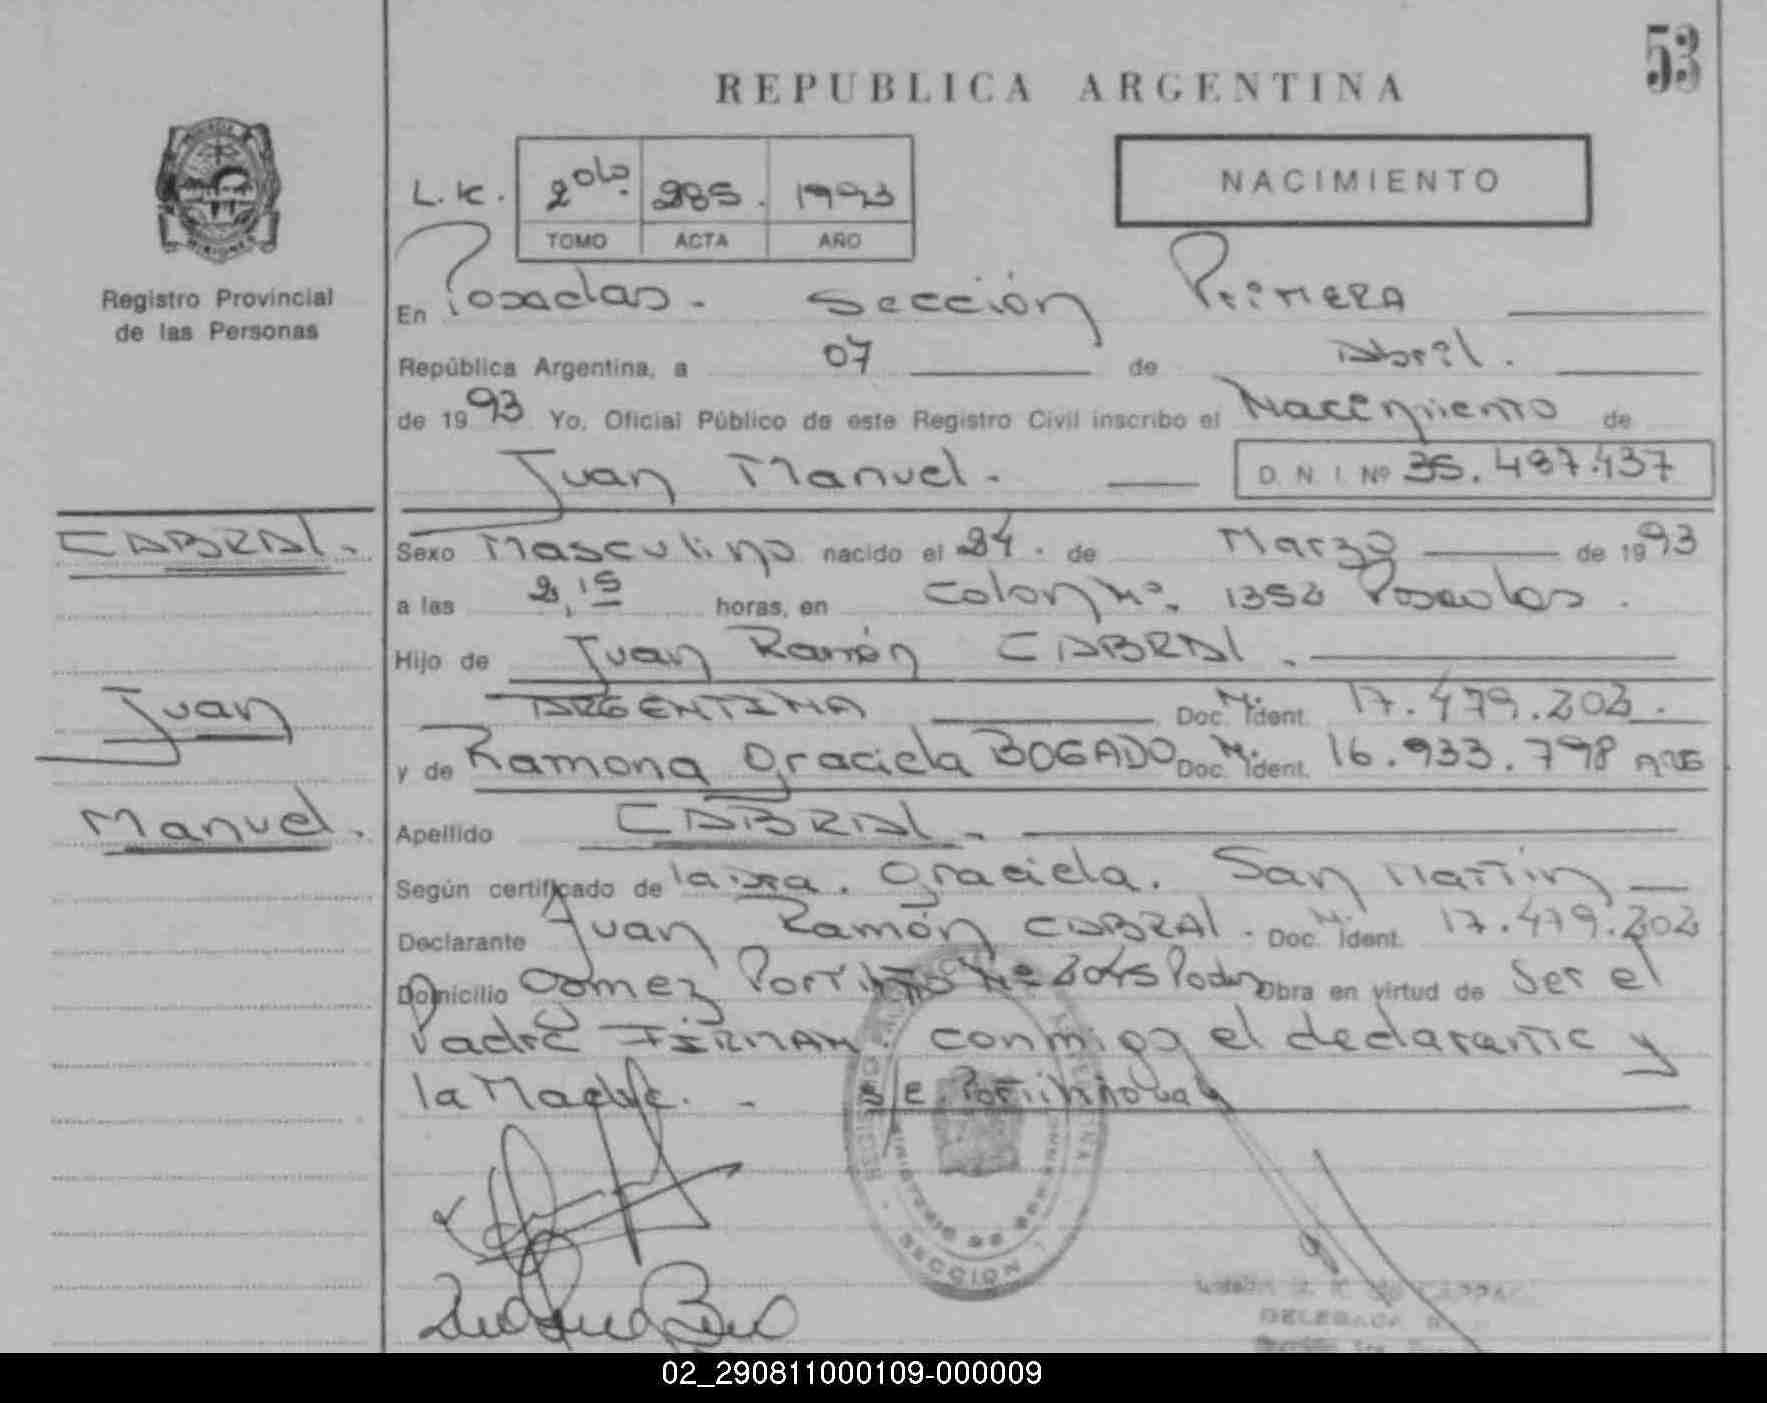 53
REPUBLICA ARGENTINA
NACIMIENTO
L.K. 2do. 285. 1993
TOMO ACTA AÑO
Registro Provincial
de las Personas
En Posadas. Sección Primera
República Argentina, a 07 de Abril.
de 1993 Yo, Oficial Público de este Registro Civil inscribo el Nacimiento de
Juan Manuel. D. N. I. Nº 35.487.437
CABRAL.
Juan
Manuel.
Sexo Masculino nacido el 24. de Marzo de 1993
a las 2,15 horas, en Colon Nº. 1352 Posadas.
Hijo de Juan Ramón CABRAL.
ARGENTINA Doc. M. Ident. 17.479.202.
y de Ramona Graciela BOGADO Doc. M. Ident. 16.933.798 ARG
Apellido CABRAL.
Según certificado de la Dra. Graciela. San Martín
Declarante Juan Ramón CABRAL. Doc. M. Ident. 17.479.202
Domicilio Gomez Portinho Nº 2045 Obra en virtud de Ser el
Padre FIRMAN. conmigo el declarante y
la Madre. -
SECCION
DELEGADA
02_290811000109-000009